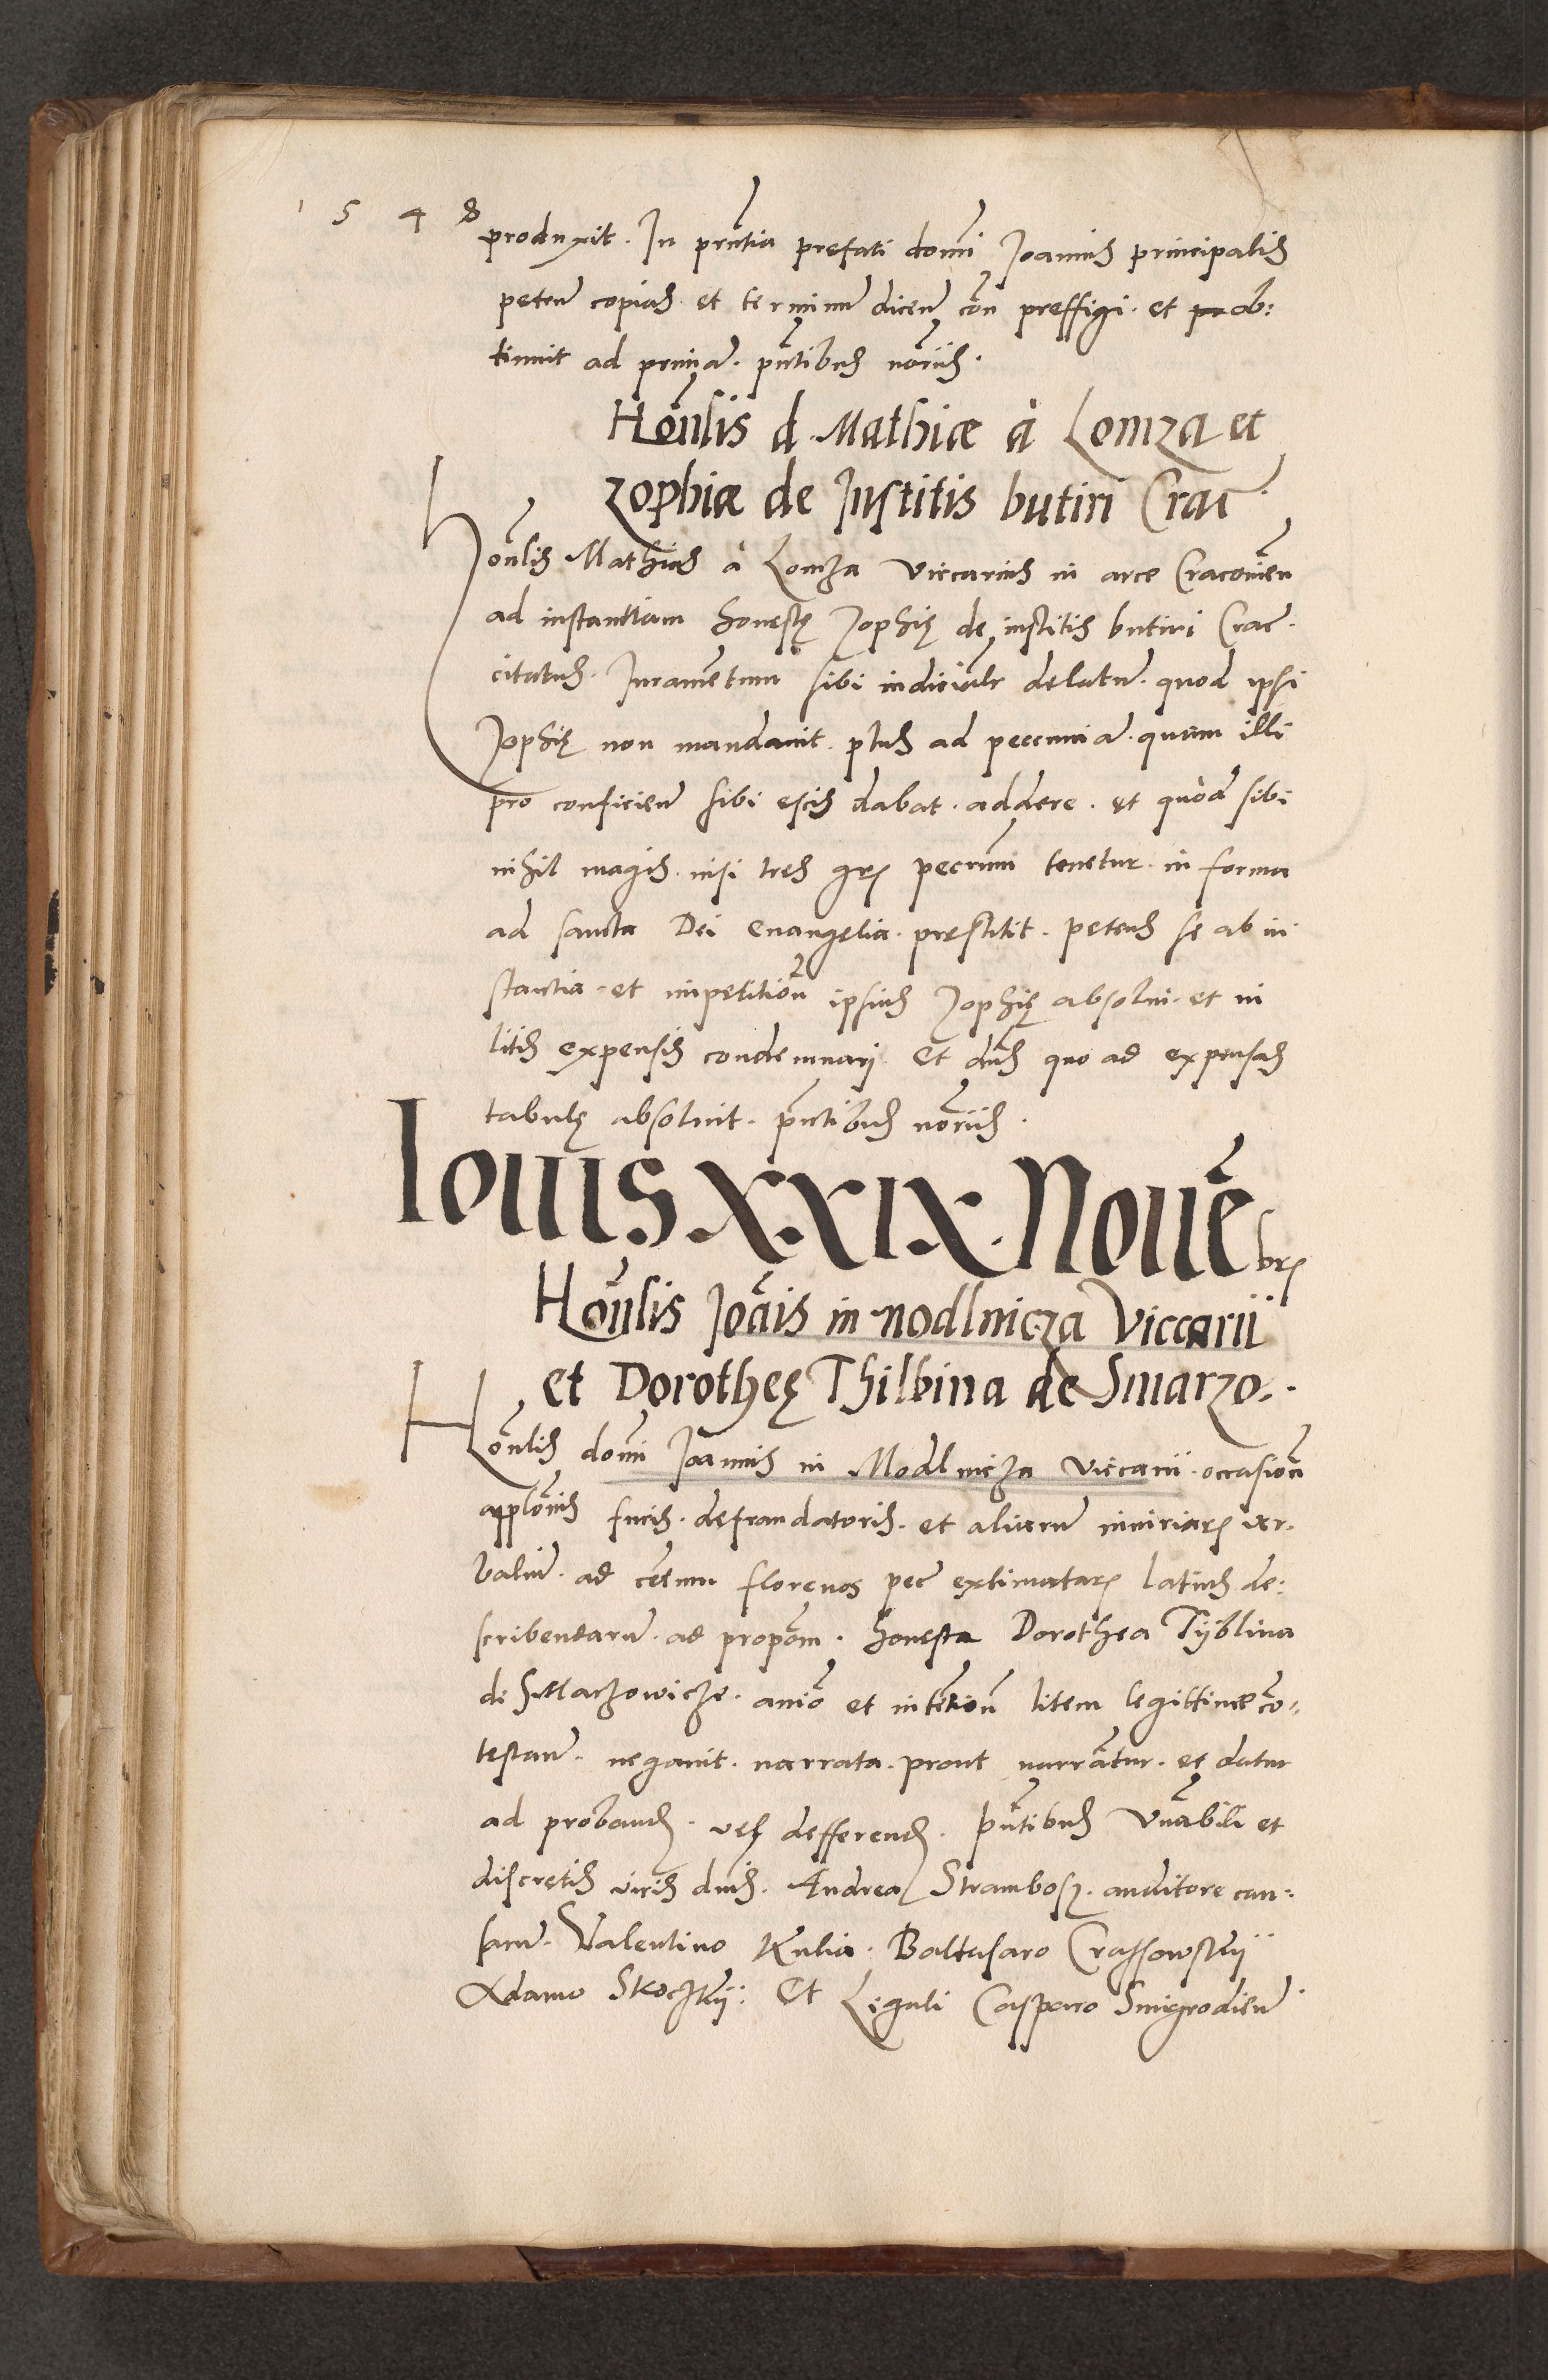 1 5 4 8
produxit. In prn̄tia prefati domī Joannis principalis
peten̄ copias. et terminū dicen̄ cōn preffigi. et ob:
tinuit ad primā. pn̄tibus nōriis.
Hōnlis d. Mathiæ à Lomza et
Zophiæ de Institis butiri Crac.
Honl̄is Mathias à Lomza viccarius in arce Cracovien̄
ad instantiam honestę Zophię de institis butiri Crac.
citatus. Iuramētum sibi iudicialr̄ delatū. quod ipsi
Zophię non mandavit. plus ad pecuniā. quam illi
pro conficien̄ sibi escis dabat. addere. et quòd sibi
nihil magis. nisi tres grs pecunī tenetur. in forma
ad sancta Dei evangelia. prestitit. petens se ab in
stantia. et impetitiōn ipsius Zophię absolvi. et in
litis expensis condemnari. Et dn̄s quo ad expensas
tabulę absolvit. pn̄tibus nōriis.
Iovis XXIX. Novē
brs
Hōnlis Joāis in nodlnicza Viccarii
et Dorotheę Thilbina de Smarzo..
Hōnlis domī Joannis in Modlnicza viccarii. occasiōn
applōnis furis. defraudatoris. et aliarū iniuriar ver.
baliū. ad cētum florenos pec̄ extimatar latius de:
scribendarū. ad propōm. honesta Dorothea Tÿblina
de Smarzowicze. animo et intētiōn litem legittimæ cō-
testan̄. negavit. narrata. prout narrātur. et datur
ad proband. vel defferend. pn̄tibus Vn̄abili et
discretis viris dnis. Andrea Strambosz. auditore cau:
sarū. Valentino Kulia. Baltasaro Crassowskÿ
Adamo Skoczkÿ: Et Ligali Casparo Smigrodien̄.